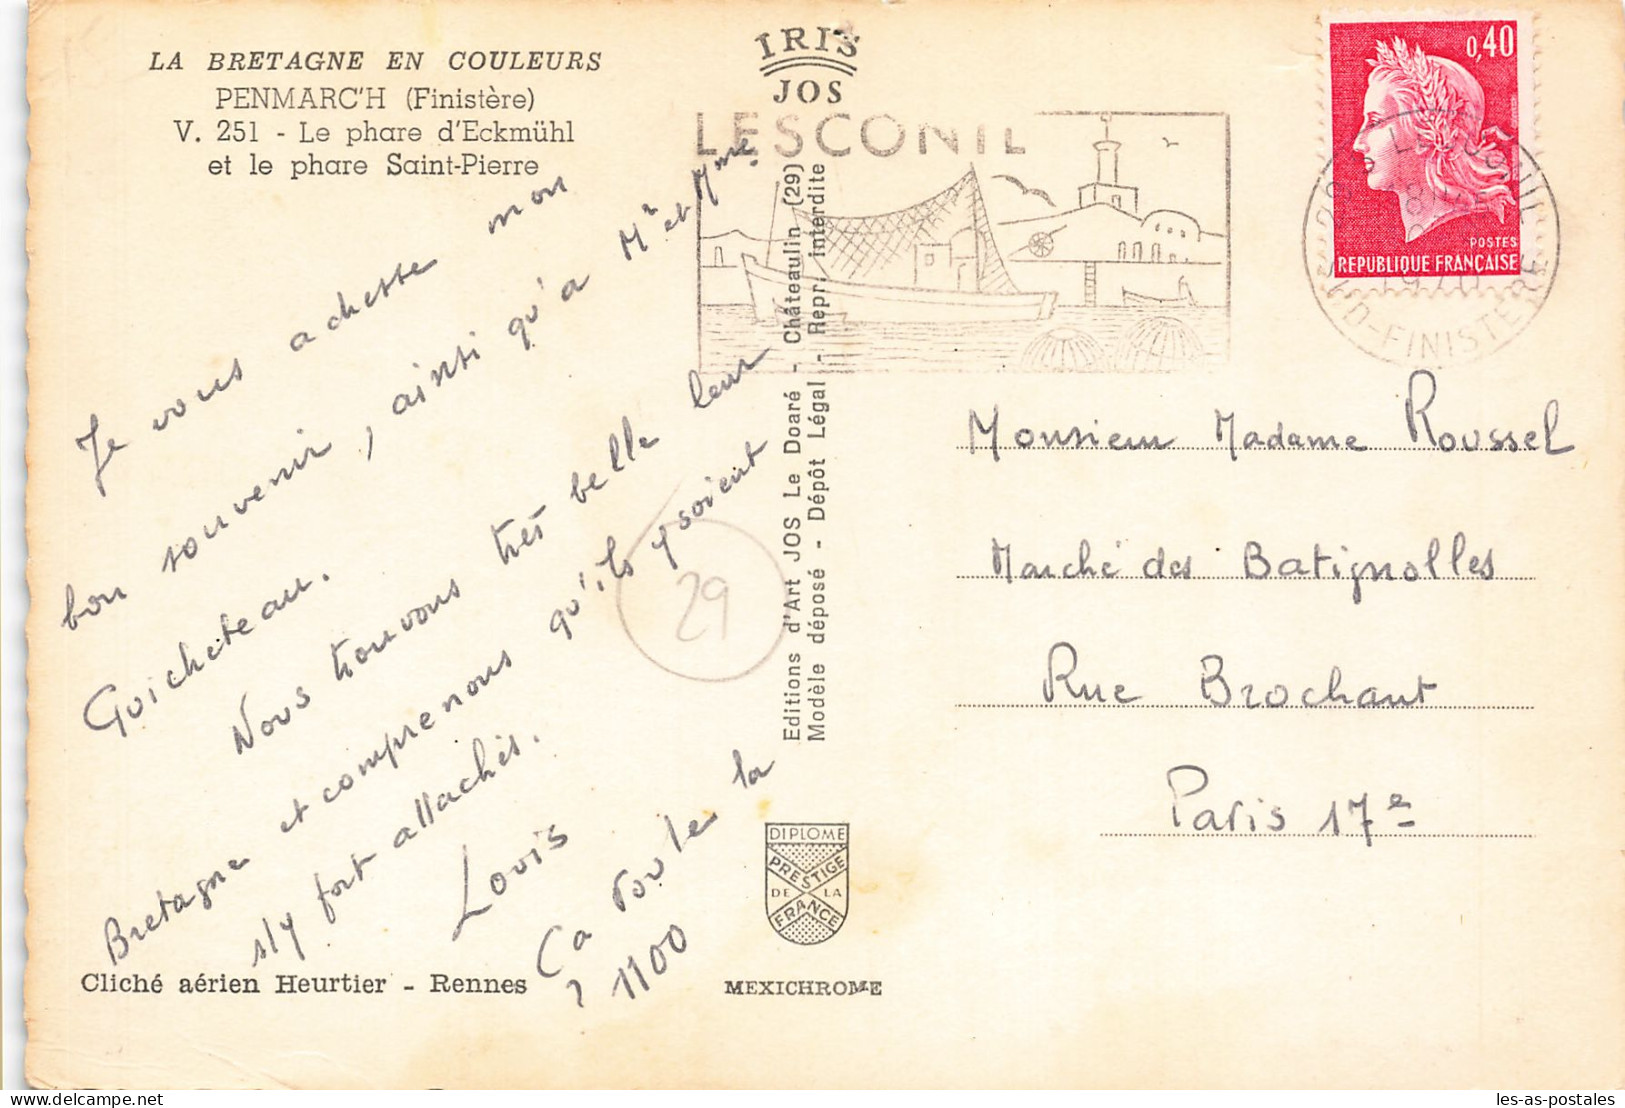 LA BRETAGNE EN COULEURS
PENMARC'H (Finistère)
V. 251 - Le phare d'Eckmühl
et le phare Saint-Pierre
IRIS
JOS
LESCONIL
0,40
POSTES
REPUBLIQUE FRANÇAISE
LESCONIL
1970
FINISTERE
Je vous achette mon
bon souvenir, ainsi qu'a Mr et Mme
Guicheteau.
Nous trouvons très belle leur
Bretagne et comprenons qu'ils y soient
s'y fort attachés.
Louis
Ca roule la
? 1100
29
Editions d'Art JOS Le Doaré - Châteaulin (29)
Modèle déposé - Dépôt Légal - Repr. interdite
Monsieur Madame Roussel
Marché des Batignolles
Rue Brochant
Paris 17e
DIPLOME
PRESTIGE
DE LA
FRANCE
Cliché aérien Heurtier - Rennes
MEXICHROME
les-as-postales